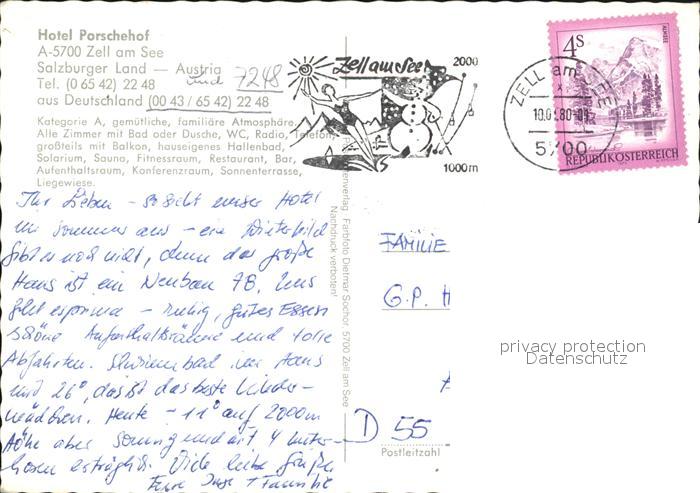 Hotel Porschehof
A-5700 Zell am See
Salzburger Land — Austria
Tel. (0 65 42) 22 48 und 7248
aus Deutschland (00 43 / 65 42) 22 48
Kategorie A, gemütliche, familiäre Atmosphäre,
Alle Zimmer mit Bad oder Dusche, WC, Radio, Telefon,
großteils mit Balkon, hauseigenes Hallenbad,
Solarium, Sauna, Fitnessraum, Restaurant, Bar,
Aufenthaltsraum, Konferenzraum, Sonnenterrasse,
Liegewiese.
Ihr Lieben - so sieht unser Hotel
im Sommer aus - eine Winterbild
gibt es noch nicht, denn das große
Haus ist ein Neubau 78. Uns
geht es prima - ruhig, gutes Essen
schöne Aufenthaltsräume und tolle
Abfahrten. Schwimmbad im Haus
mit 26°, das ist das beste Kinder-
mädchen. Heute - 11° auf 2000m
Höhe aber sonnig und mit 4 Unter-
hosen erträglich. Viele liebe Grüße
Eure Inge + Familie
Zell am See
2000
1000m
ZELL am SEE
5700
4s
ALMSEE
REPUBLIK ÖSTERREICH
Farbfoto Dietmar Sochor, 5700 Zell am See
Nachdruck verboten!
FAMILIE
G.P. H
D 55
Postleitzahl
privacy protection
Datenschutz